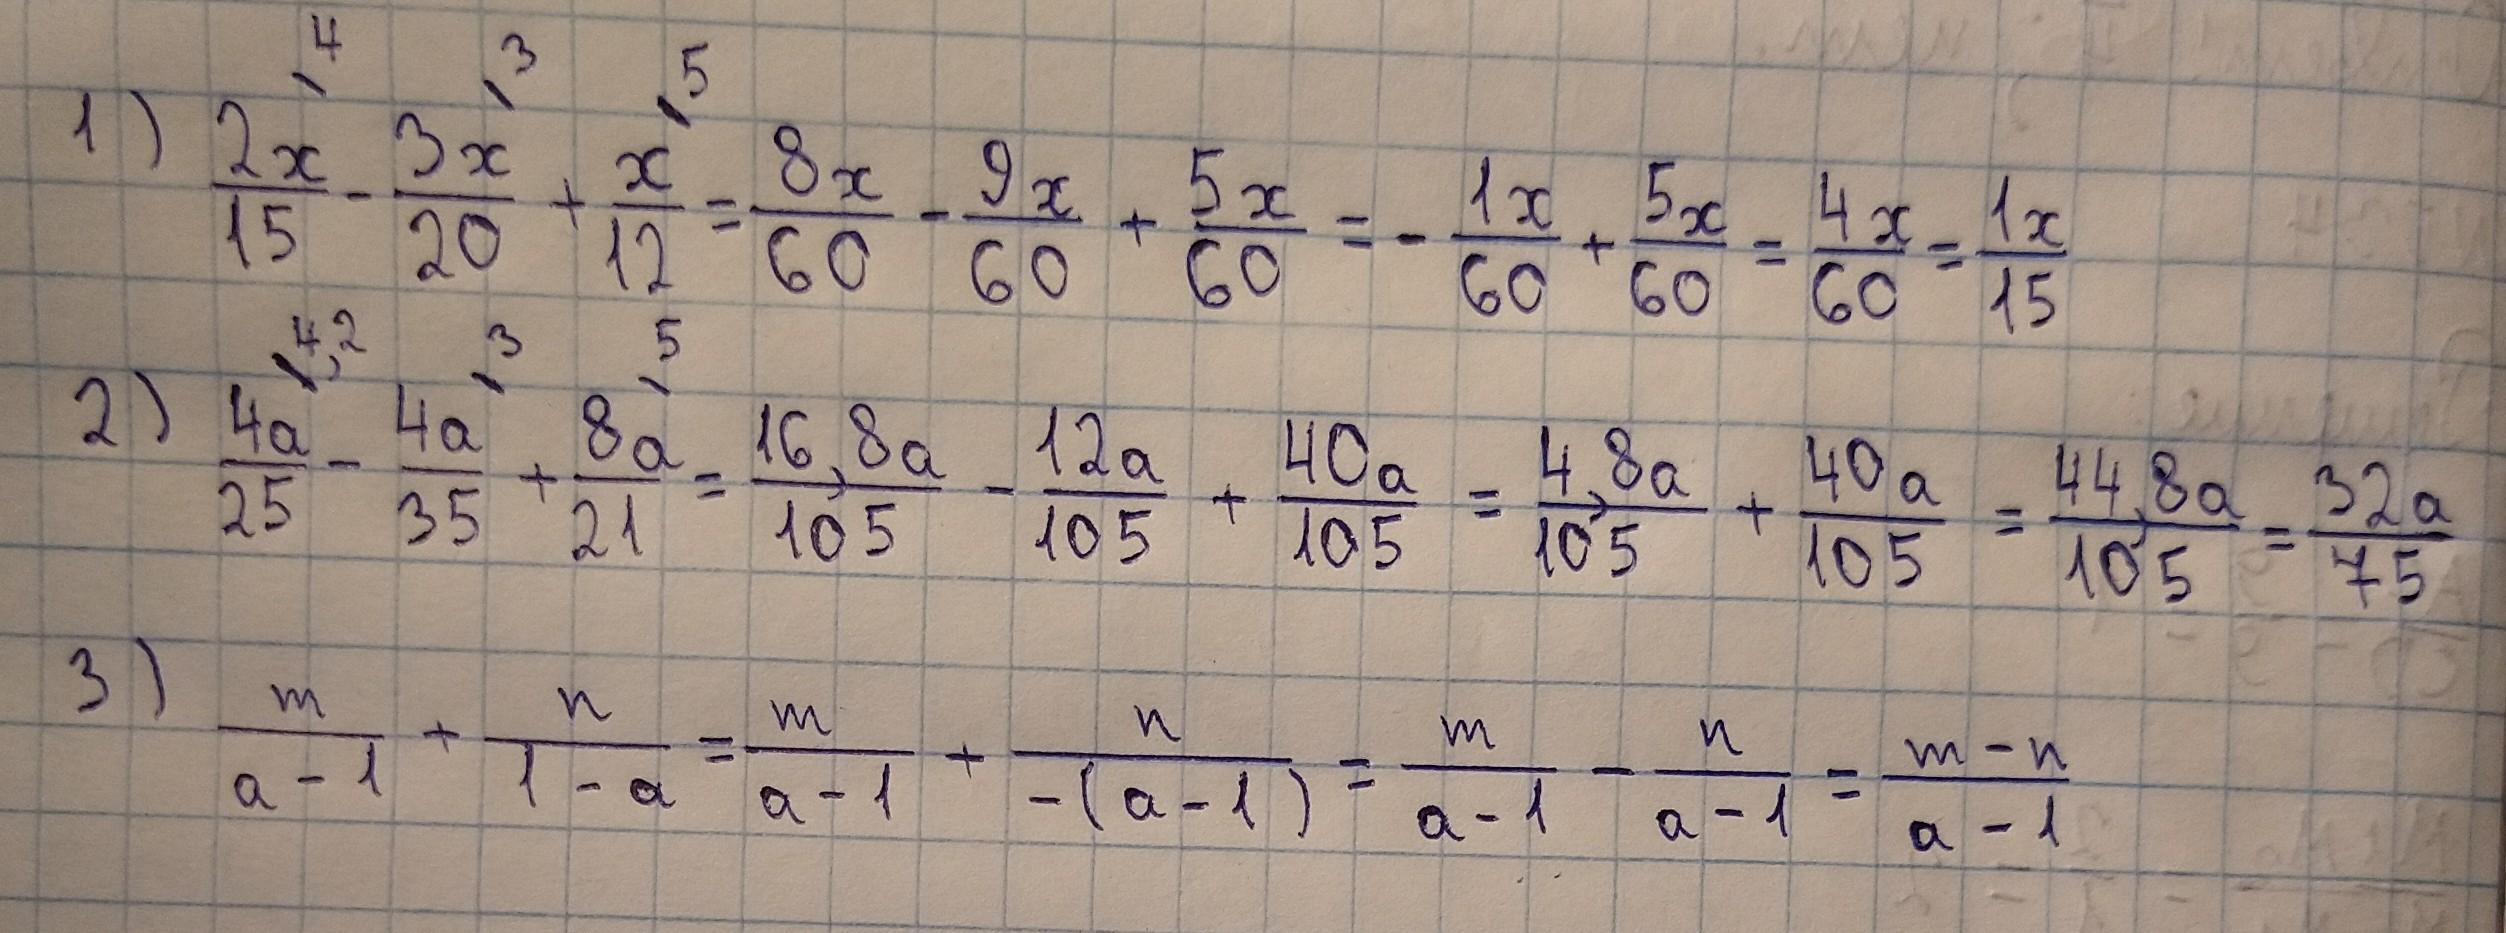 1) 2x/15 - 3x/20 + x/12 = 8x/60 - 9x/60 + 5x/60 = - 1x/60 + 5x/60 = 4x/60 = 1x/15
2) 4a/25 - 4a/35 + 8a/21 = 16,8a/105 - 12a/105 + 40a/105 = 4,8a/105 + 40a/105 = 44,8a/105 = 32a/75
3) m/(a-1) + n/(1-a) = m/(a-1) + n/(-(a-1)) = m/(a-1) - n/(a-1) = (m-n)/(a-1)